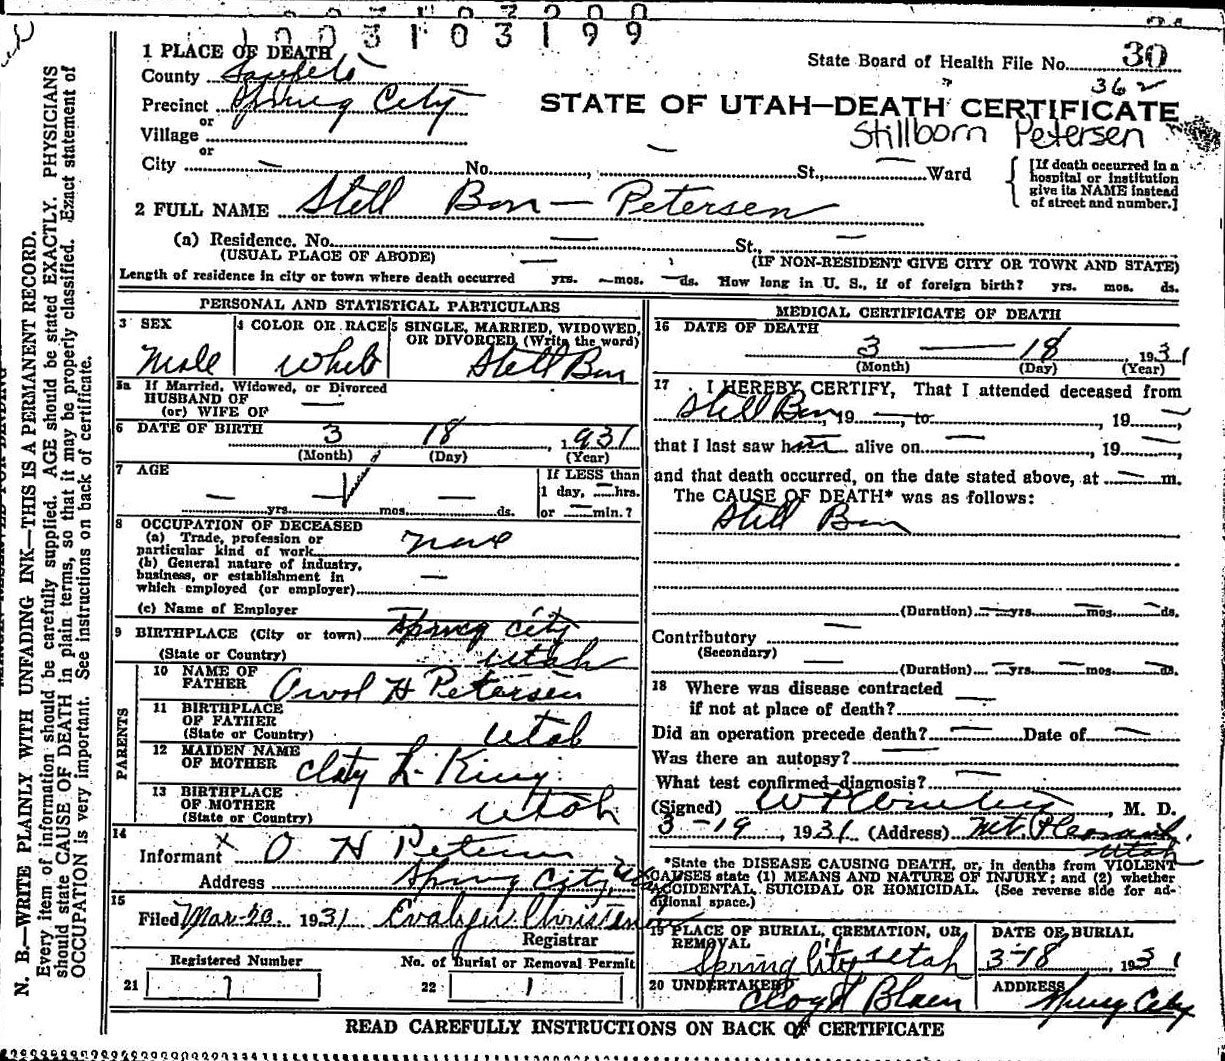 1003103199
1 PLACE OF DEATH
State Board of Health File No. 30
County Sanpete
362
Precinct Spring City
STATE OF UTAH—DEATH CERTIFICATE
or
Stillborn Petersen
Village
or
City — No. , — St., — Ward
[If death occurred in a
hospital or institution
give its NAME instead
of street and number.]
2 FULL NAME Still Born — Petersen
(a) Residence. No. — St., —
(USUAL PLACE OF ABODE) — (IF NON-RESIDENT GIVE CITY OR TOWN AND STATE)
Length of residence in city or town where death occurred yrs. — mos. — ds. How long in U. S., if of foreign birth? yrs. mos. ds.
PERSONAL AND STATISTICAL PARTICULARS
3 SEX
Male
4 COLOR OR RACE
White
5 SINGLE, MARRIED, WIDOWED,
OR DIVORCED (Write the word)
Still Born
5a If Married, Widowed, or Divorced
HUSBAND OF —
(or) WIFE OF
6 DATE OF BIRTH 3 18 , 1931
(Month) (Day) (Year)
7 AGE
— yrs. — mos. — ds.
If LESS than
1 day, — hrs.
or — min.?
8 OCCUPATION OF DECEASED
(a) Trade, profession or
particular kind of work none
(b) General nature of industry,
business, or establishment in
which employed (or employer) —
(c) Name of Employer
9 BIRTHPLACE (City or town) Spring City
(State or Country) Utah
PARENTS
10 NAME OF
FATHER H Petersen
11 BIRTHPLACE
OF FATHER
(State or Country) Utah
12 MAIDEN NAME
OF MOTHER L. King
13 BIRTHPLACE
OF MOTHER
(State or Country) Utah
14
Informant x O H Petersen
Address Spring City, Ut
15
Filed Mar-20 1931 Evalyn Christensen
Registrar
Registered Number No. of Burial or Removal Permit
21 1 22 1
MEDICAL CERTIFICATE OF DEATH
16 DATE OF DEATH
3 — 18 , 1931
(Month) (Day) (Year)
17 I HEREBY CERTIFY, That I attended deceased from
Still Born, 19 — to — , 19 —,
that I last saw him alive on — , 19 —,
and that death occurred, on the date stated above, at — m.
The CAUSE OF DEATH* was as follows:
Still Born
(Duration) — yrs. — mos. — ds.
Contributory —
(Secondary)
— (Duration) — yrs. — mos. — ds.
18 Where was disease contracted
if not at place of death? —
Did an operation precede death? — Date of —
Was there an autopsy? —
What test confirmed diagnosis? —
(Signed) , M. D.
3-19 , 1931 (Address) Mt. Pleasant,
Utah
*State the DISEASE CAUSING DEATH, or, in deaths from VIOLENT
CAUSES state (1) MEANS AND NATURE OF INJURY; and (2) whether
ACCIDENTAL, SUICIDAL OR HOMICIDAL. (See reverse side for ad-
ditional space.)
19 PLACE OF BURIAL, CREMATION, OR
REMOVAL
Spring City Utah
DATE OF BURIAL
3-18 , 1931
20 UNDERTAKER
ADDRESS
Spring City
READ CAREFULLY INSTRUCTIONS ON BACK OF CERTIFICATE
N. B.—WRITE PLAINLY WITH UNFADING INK—THIS IS A PERMANENT RECORD.
Every item of information should be carefully supplied. AGE should be stated EXACTLY. PHYSICIANS
should state CAUSE OF DEATH in plain terms, so that it may be properly classified. Exact statement of
OCCUPATION is very important. See instructions on back of certificate.